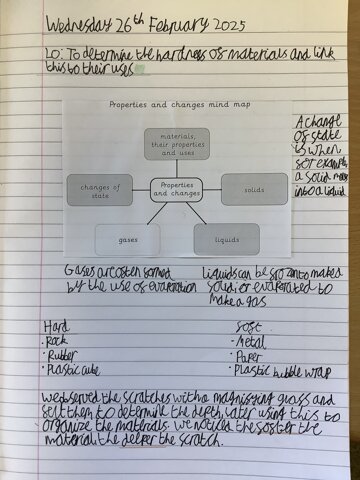 Wednesday 26th February 2025
LO: To determine the hardness of materials and link
this to their uses
Properties and changes mind map
materials,
their properties
and uses
changes of
state
Properties
and changes
solids
gases
liquids
A change
of state
is when
for example
a solid
into a liquid
Gases are often formed
by the use of evaporation
Liquids can be frozen to
solid or evaporated to
make a gas
Hard
• Rock
• Rubber
• Plastic cube
Soft
• Metal
• Paper
• Plastic bubble wrap
We observed the scratches with a magnifying glass and
felt them to determine the depth, later using this to
organize the materials. We noticed the softer the
material, the deeper the scratch.